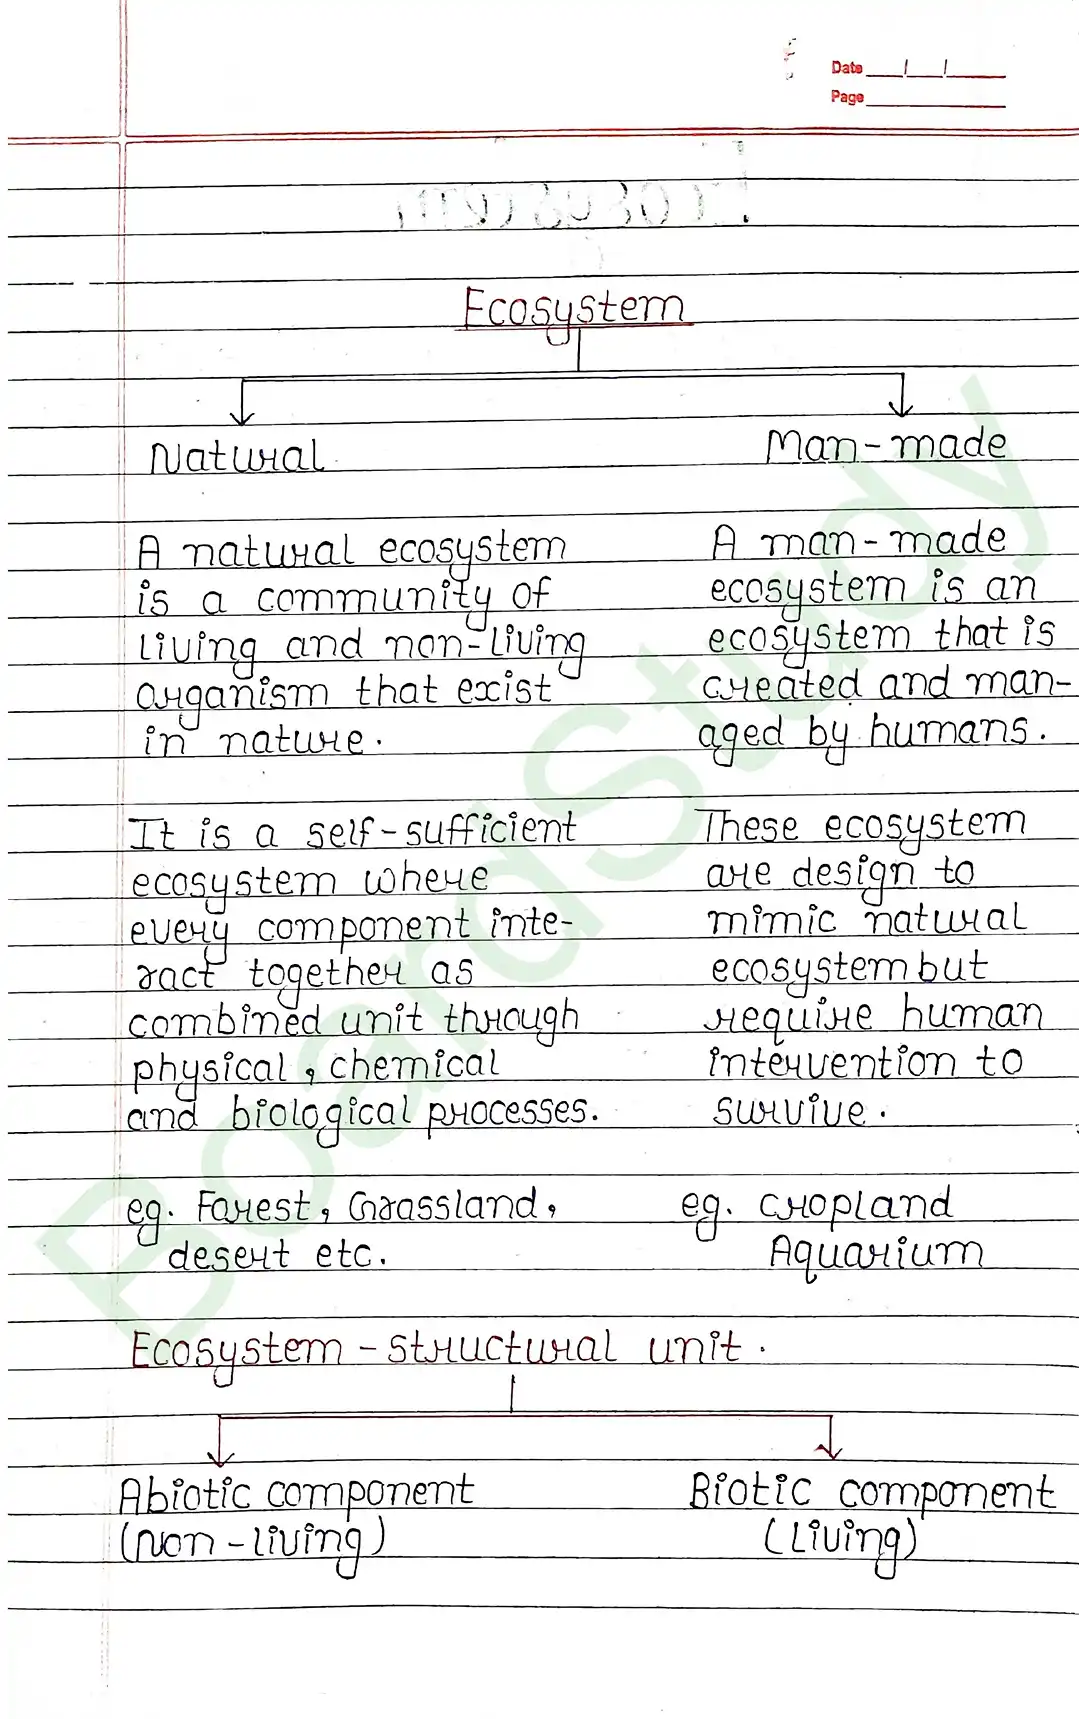 Date
Page
Ecosystem
Natural
Man-made
A natural ecosystem
is a community of
living and non-living
organism that exist
in nature.
A man-made
ecosystem is an
ecosystem that is
created and man-
aged by humans.
It is a self-sufficient
ecosystem where
every component inte-
ract together as
combined unit through
physical, chemical
and biological processes.
These ecosystem
are design to
mimic natural
ecosystem but
require human
intervention to
survive.
eg. Forest, Grassland,
desert etc.
eg. cropland
Aquarium
Ecosystem - structural unit.
Abiotic component
(non-living)
Biotic component
(Living)
BoardStudy